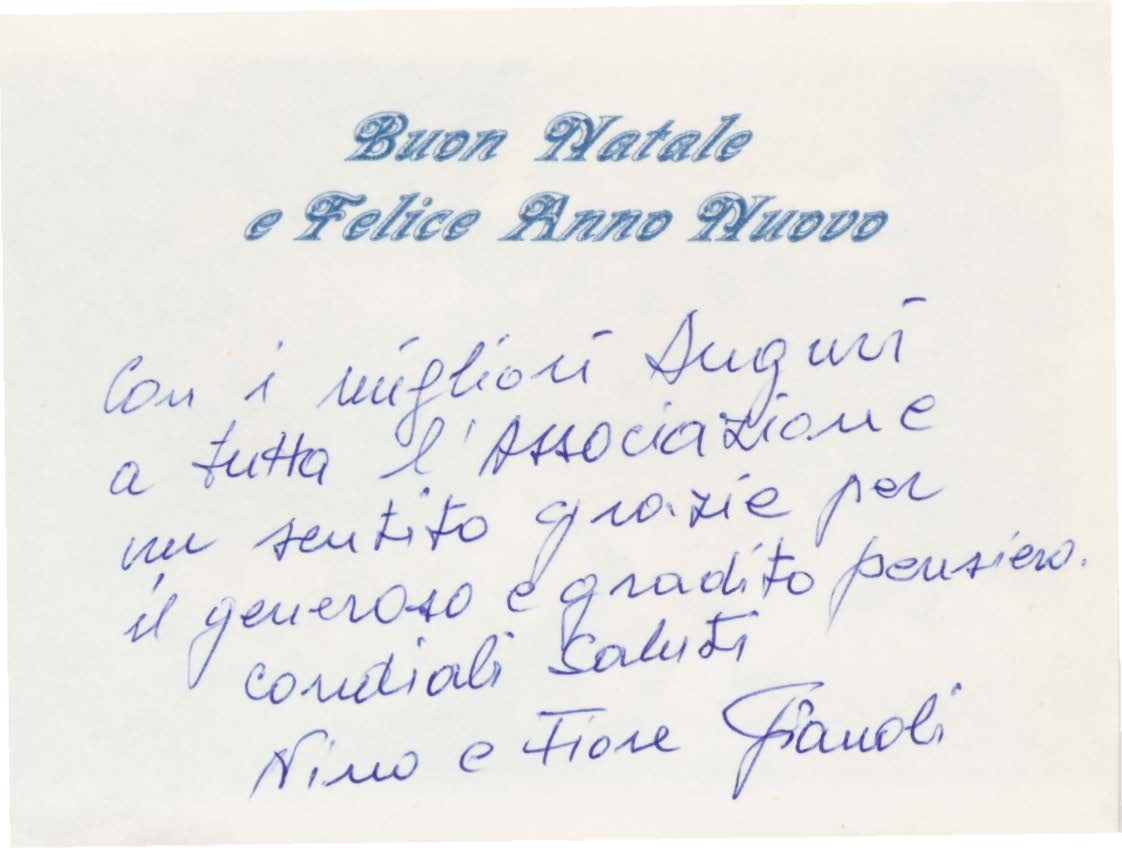 Buon Natale
e Felice Anno Nuovo
Con i migliori Auguri
a tutta l'Associazione
un sentito grazie per
il generoso e gradito pensiero.
Cordiali Saluti
Nino e Fiore Gianoli